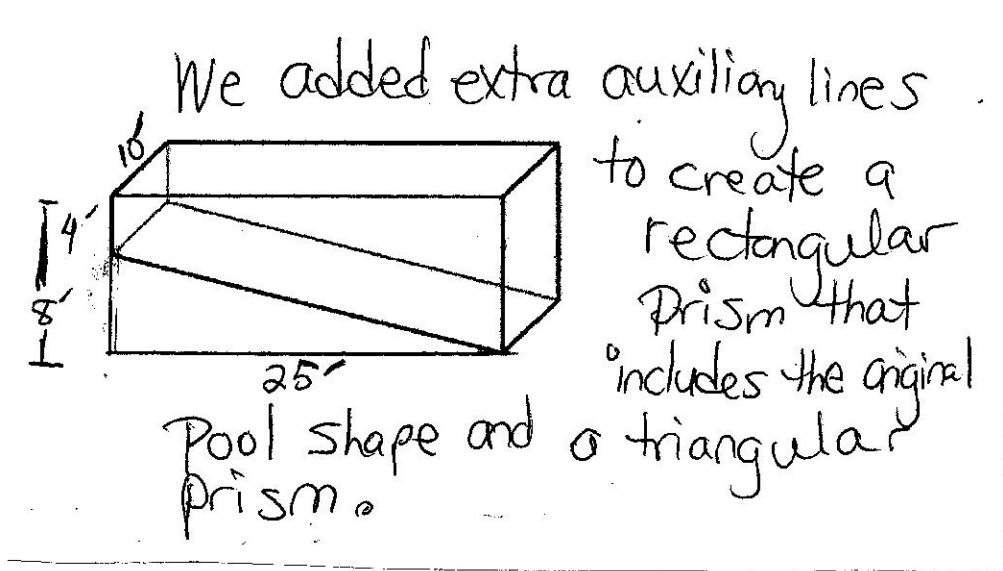 We added extra auxiliary lines
10'
to create a
4'
rectangular
8'
prism that
25'
includes the original
Pool shape and a triangular
prism.